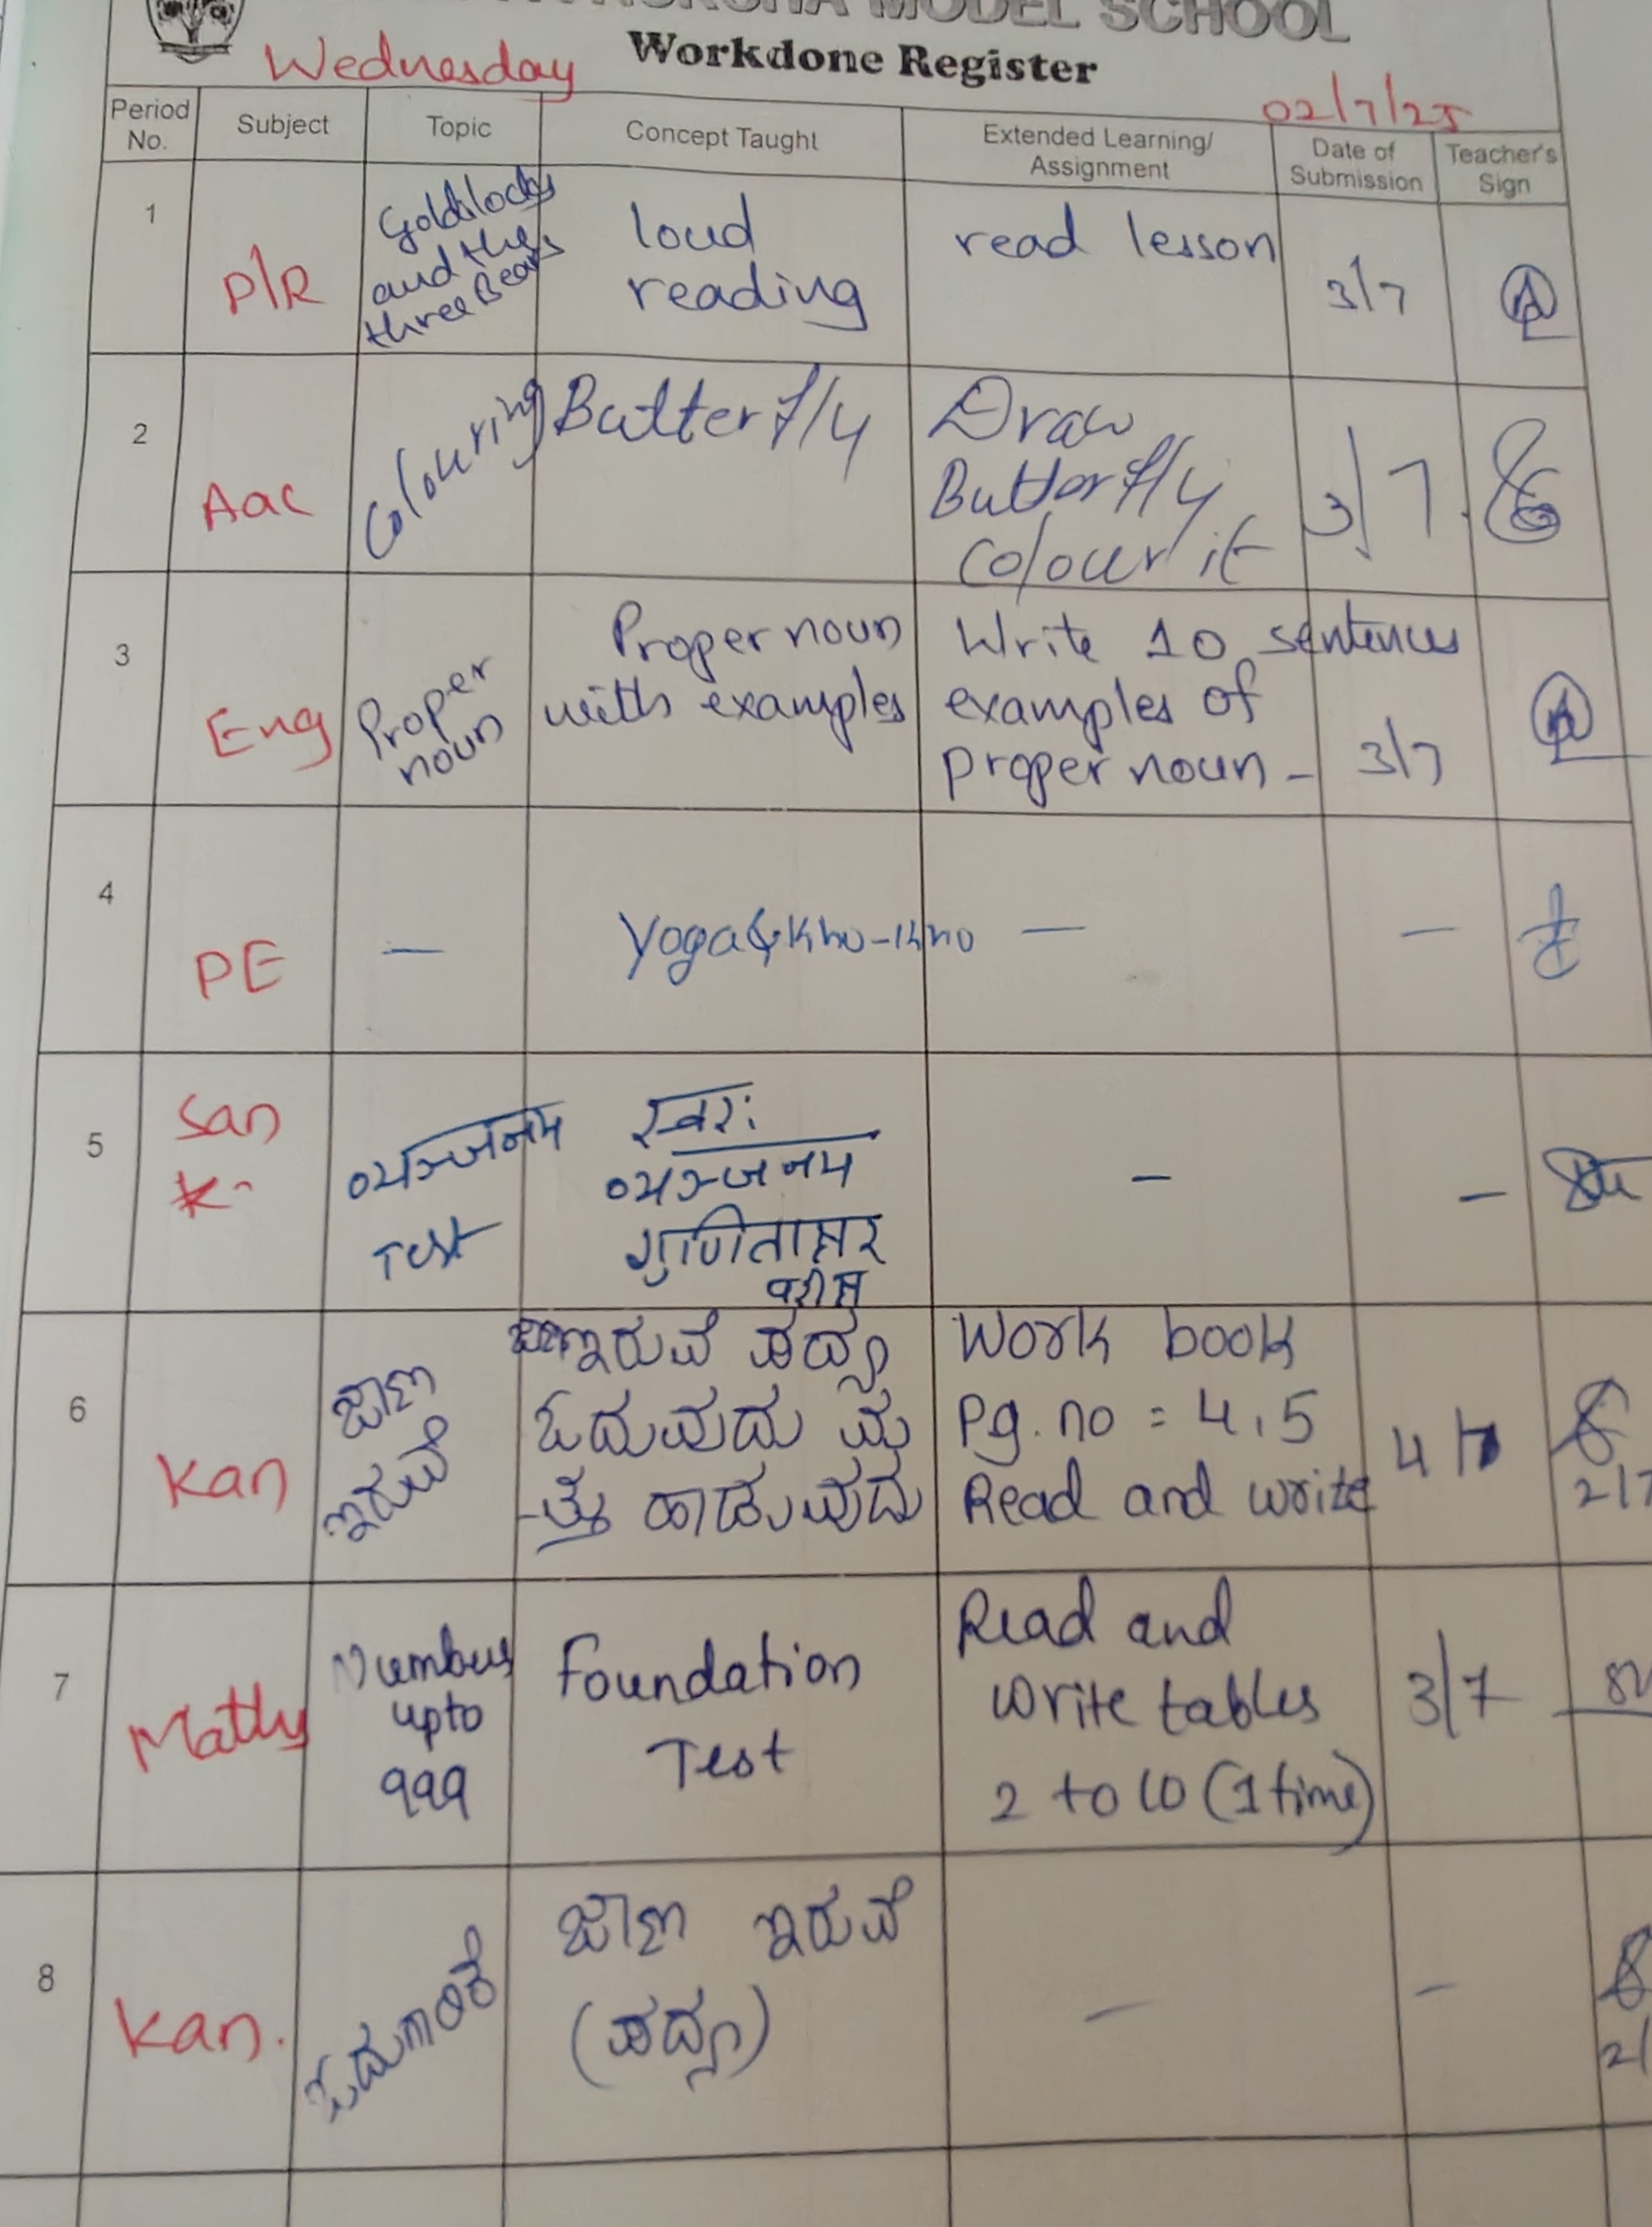 MODEL SCHOOL
Workdone Register
Wednesday
02/7/25
Period No. Subject Topic Concept Taught Extended Learning/ Assignment Date of Submission Teacher's Sign
1 P/R Goldilocks and the three Bears loud reading read lesson 3/7
2 Aac Colouring Butterfly Draw Butterfly Colour it 3/7
3 Eng Proper noun Proper noun with examples Write 10 sentences examples of proper noun - 3/7
4 PE — Yoga & Kho-Kho — —
5 San व्यञ्जनम Test स्वर: व्यञ्जनम गुणिताक्षर - -
6 Kan ಜಾಣ ಇರುವೆ ಇರುವೆ ಪದ್ಯ ಓದುವುದು ಮ -ತ್ತು ಹಾಡುವುದು Work book Pg. no = 4,5 Read and write 4/7 2/7
7 Maths Numbers upto 999 Foundation Test Read and write tables 2 to 10 (1 time) 3/7
8 Kan. ಓದುಗಾರಿಕೆ ಜಾಣ ಇರುವೆ (ಪದ್ಯ) — -